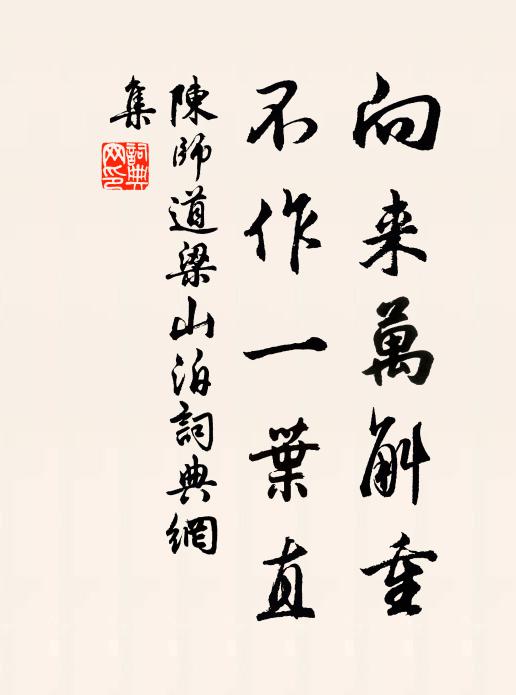 向来萬斛重
不作一葉直
陳師道梁山泊詞典網
集
詞典网印